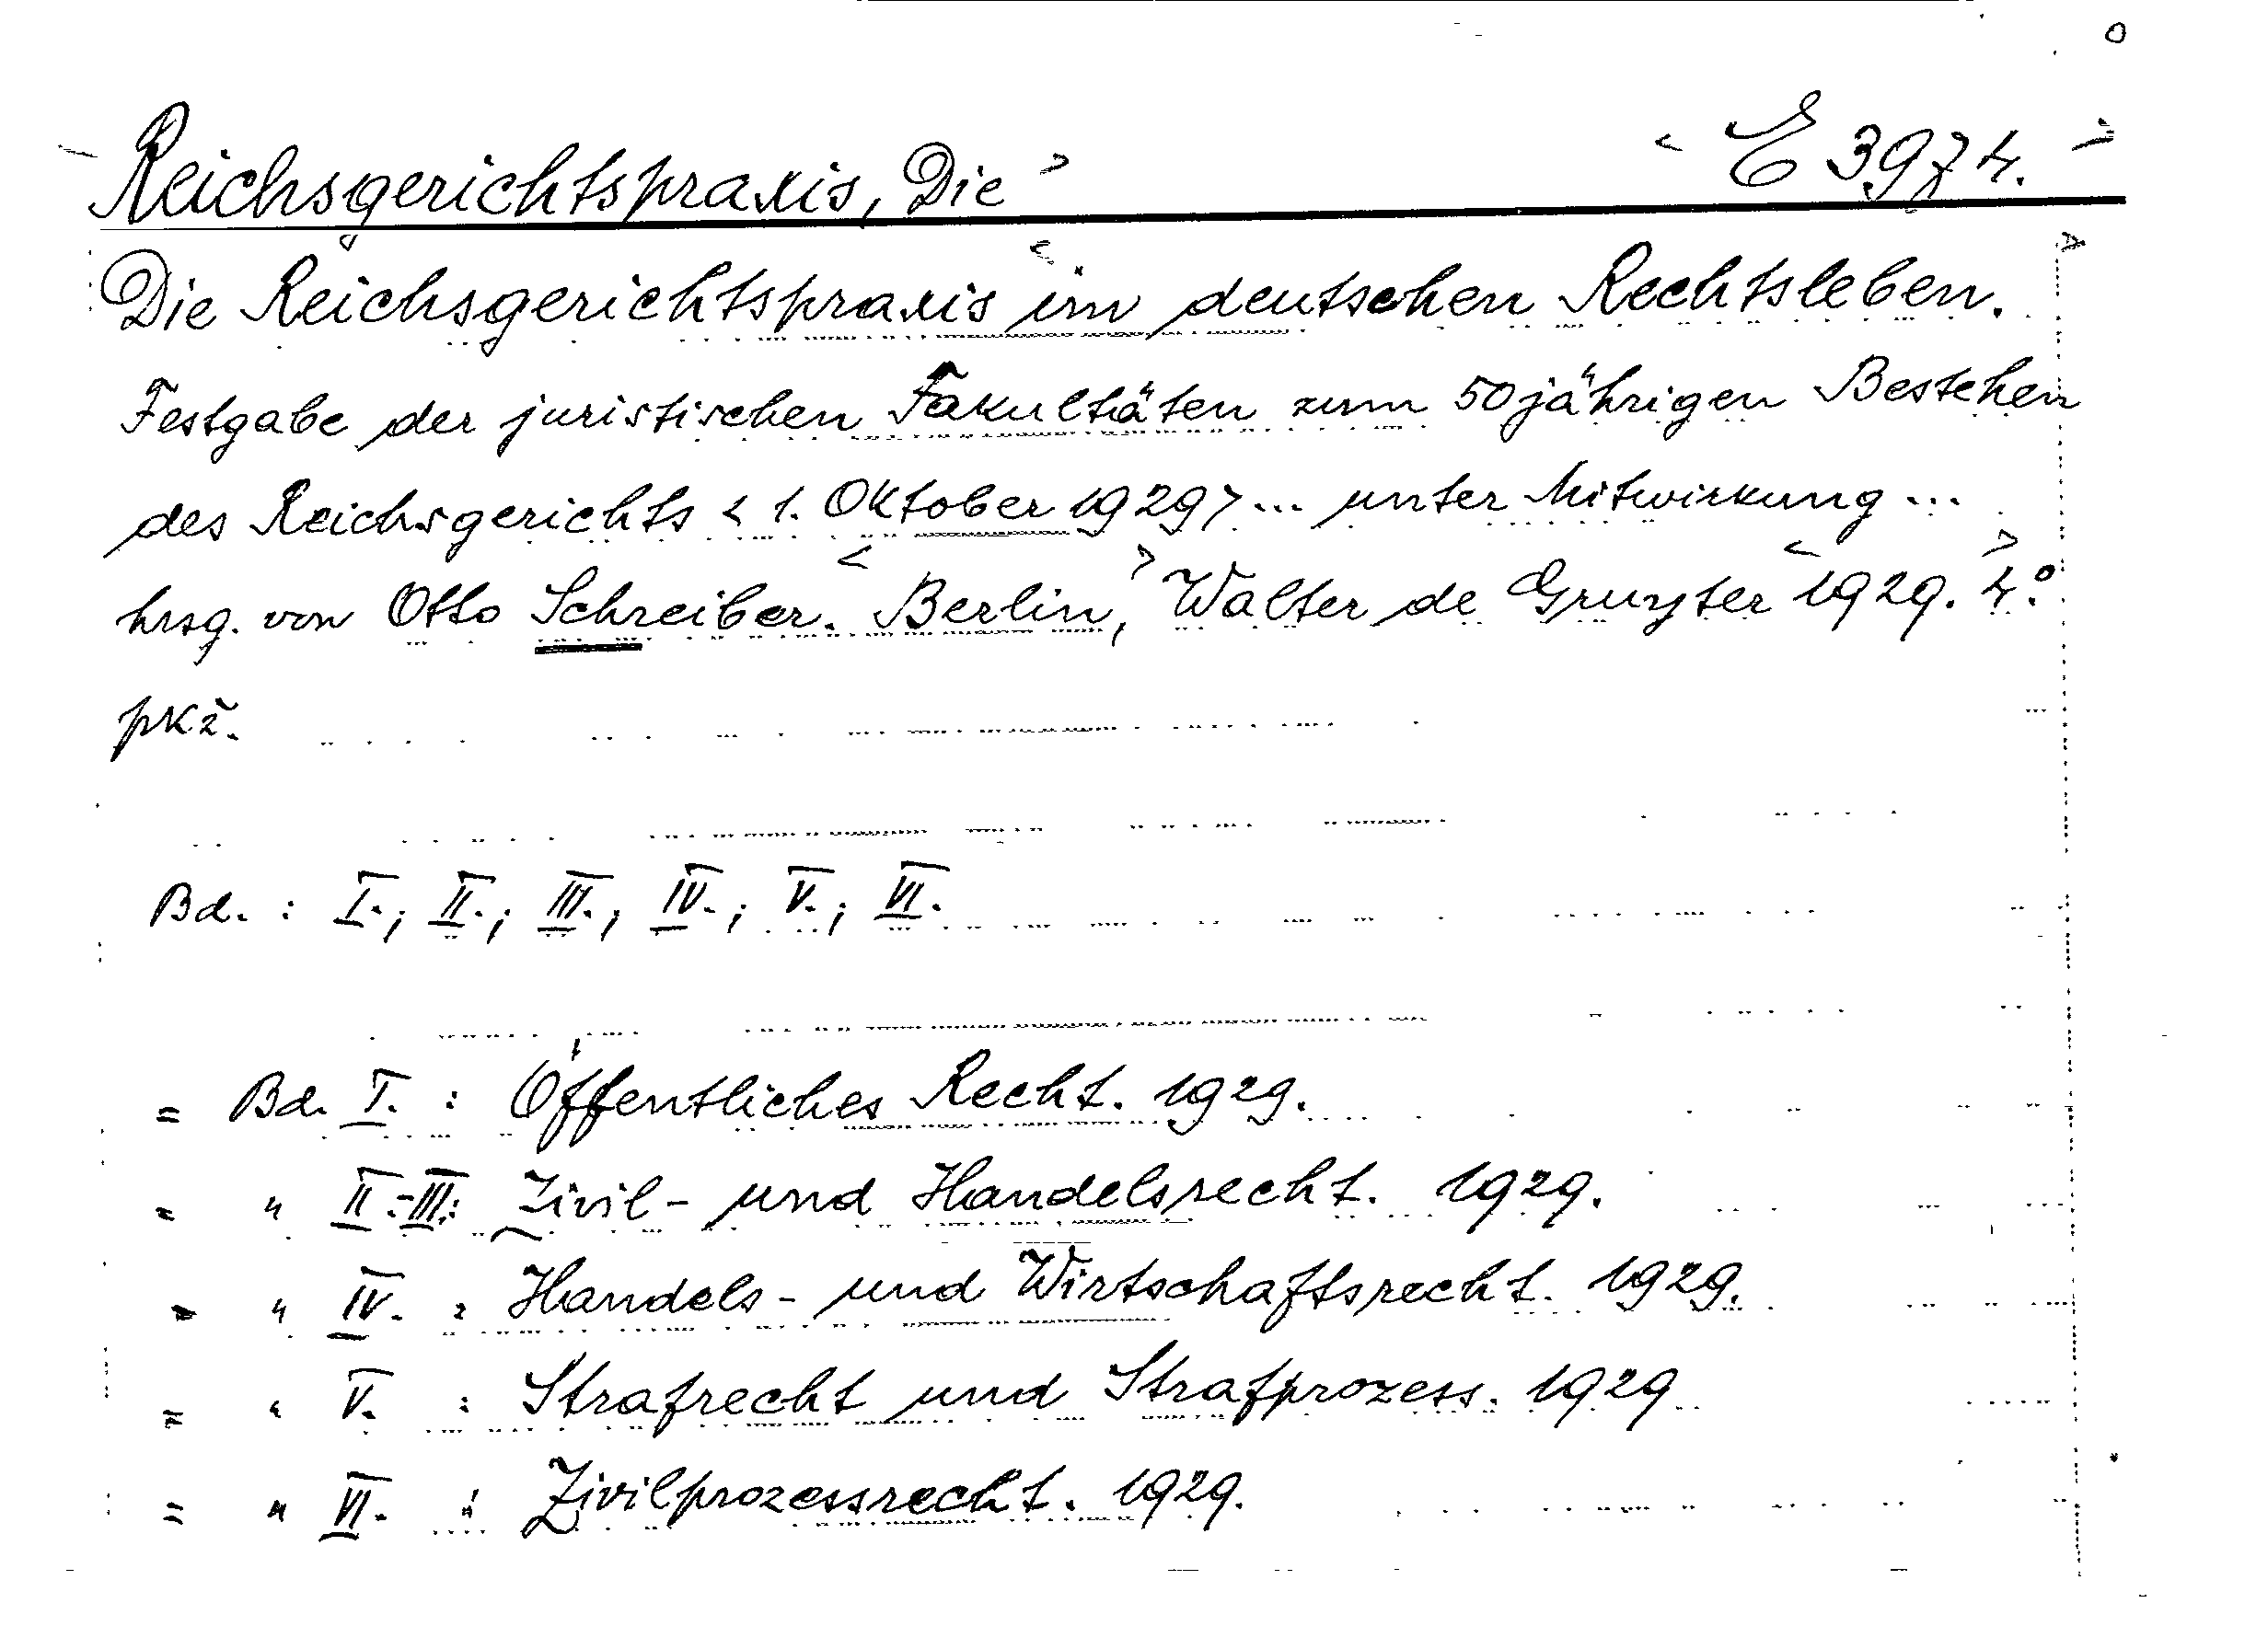 Reichsgerichtspraxis, Die E 3974.
Die Reichsgerichtspraxis im deutschen Rechtsleben.
Festgabe der juristischen Fakultäten zum 50jährigen Bestehen
des Reichsgerichts <1. Oktober 1929> ... unter Mitwirkung ...
hrsg. von Otto Schreiber. Berlin, Walter de Gruyter 1929. 4.°
pkž.
Bd. : I.; II.; III.; IV.; V.; VI.
= Bd. I. : Öffentliches Recht. 1929.
= " II.-III.: Zivil- und Handelsrecht. 1929.
= " IV. : Handels- und Wirtschaftsrecht. 1929.
= " V. : Strafrecht und Strafprozess. 1929
= " VI. : Zivilprozessrecht. 1929.